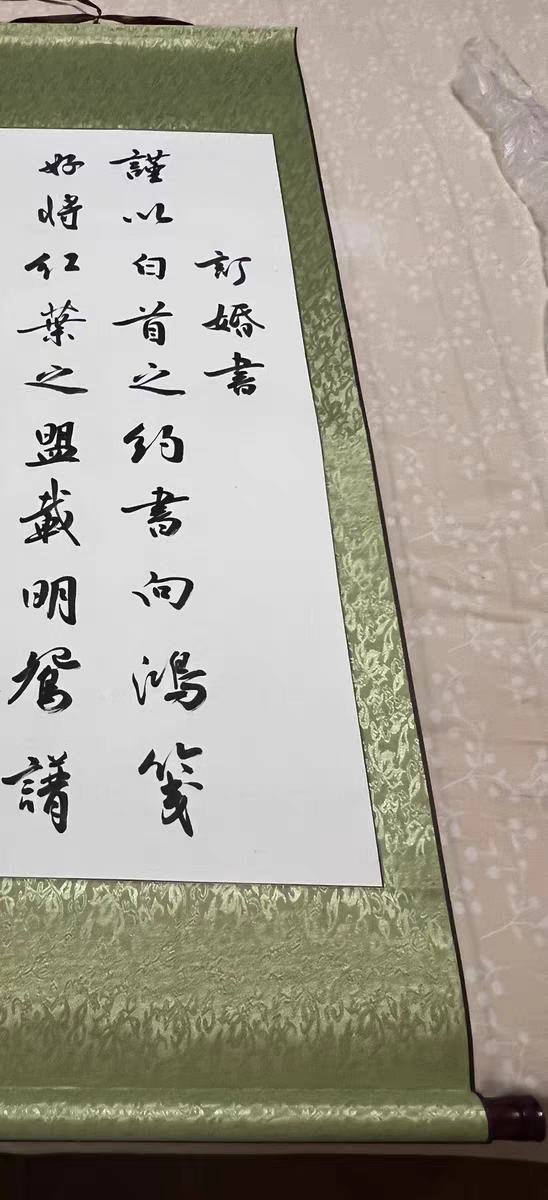 訂婚書
謹以白首之約書向鴻箋
好將红葉之盟載明鴛譜